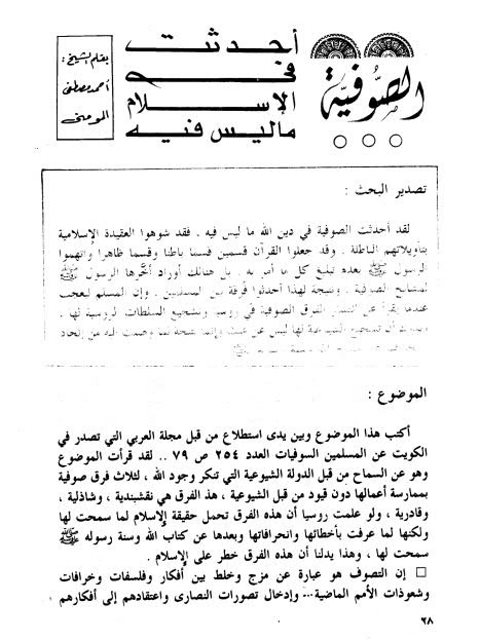 الصّوفيّة
أحدثت
في
الإسلام
ما ليس فيه
بقلم الشيخ :
أحمد مصطفى
المومني
تصدير البحث :
لقد أحدثت الصوفية في دين الله ما ليس فيه . فقد شوهوا العقيدة الإسلامية
بتأويلاتهم الباطلة . وقد جعلوا القرآن قسمين قسما باطنا وقسما ظاهرا واتهموا
الرسول ﷺ بعدم تبليغ كل ما أمر به . بل هنالك أوراد أخّرها الرسول ﷺ
لمشايخ الصوفية . ونتيجة لهذا أحدثوا فرقة من المسلمين . وإن المسلم ليعجب
عندما يقرأ عن انتشار الفرق الصوفية في روسيا وتشجيع السلطات الروسية لها .
الموضوع :
أكتب هذا الموضوع وبين يدى استطلاع من قبل مجلة العربي التي تصدر في
الكويت عن المسلمين السوفيات العدد ٢٥٤ ص ٧٩ .. لقد قرأت الموضوع
وهو عن السماح من قبل الدولة الشيوعية التي تنكر وجود الله ، لثلاث فرق صوفية
بممارسة أعمالها دون قيود من قبل الشيوعية ، هذ الفرق هي نقشبندية ، وشاذلية ،
وقادرية ، ولو علمت روسيا أن هذه الفرق تحمل حقيقة الإسلام لما سمحت لها
ولكنها لما عرفت بأخطائها وانحرافاتها وبعدها عن كتاب الله وسنة رسوله ﷺ
سمحت لها ، وهذا يدلنا أن هذه الفرق خطر على الإسلام .
□ إن التصوف هو عبارة عن مزج وخلط بين أفكار وفلسفات وخرافات
وشعوذات الأمم الماضية... وإدخال تصورات النصارى واعتقادهم إلى أفكارهم
٢٨